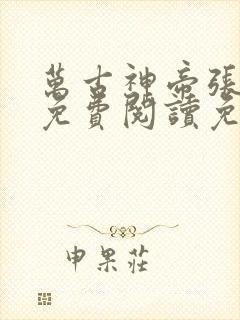 萬古神帝張
免費閱讀免
申果莊